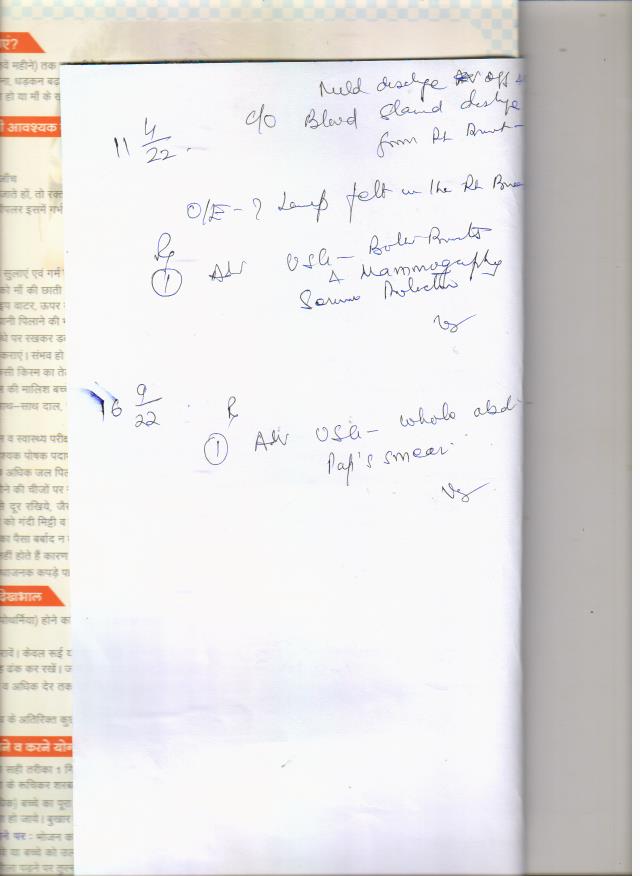 एं?
वें महीने) तक
ना, धड़कन बढ़
हो या माँ के स
ी आवश्यक
जाँच
जाते हों, तो रक्त
पलर इसमें गर्भ
सुलाएं एवं गर्म
को माँ की छाती
इप वाटर, ऊपर
पानी पिलाने की
धे पर रखकर ड
कराएं। संभव हो
सी किस्म का ते
की मालिश बच्च
साथ-साथ दाल,
व स्वास्थ्य परीक्ष
श्यक पोषक पदा
अधिक जल पिल
ोने की चीजों पर
दूर रखिये, जै
को गंदी मिट्टी व
का पैसा बर्बाद न
हीं होते हैं कारण
धाजनक कपड़े प
देखभाल
पोथर्मिया) होने क
रावें। केवल रूई
ढंक कर रखें। ज
व अधिक देर तक
के अतिरिक्त कु
ने व करने योग
सही तरीका 1 गि
के रूचिकर शरब
बच्चे का पूरा
हो जाये। बुखार
ने पर : भोजन क
या बच्चे को उल
Mild discharge off
11 4/22. c/o Blood stained discharge
from Rt Breast
O/E - ? Lump felt in the Rt Brea
Rx
① Adv USG - Both Breasts
& Mammography
Serum Prolactin
16 9/22 Rx
① Adv USG - whole abd
Pap's smear